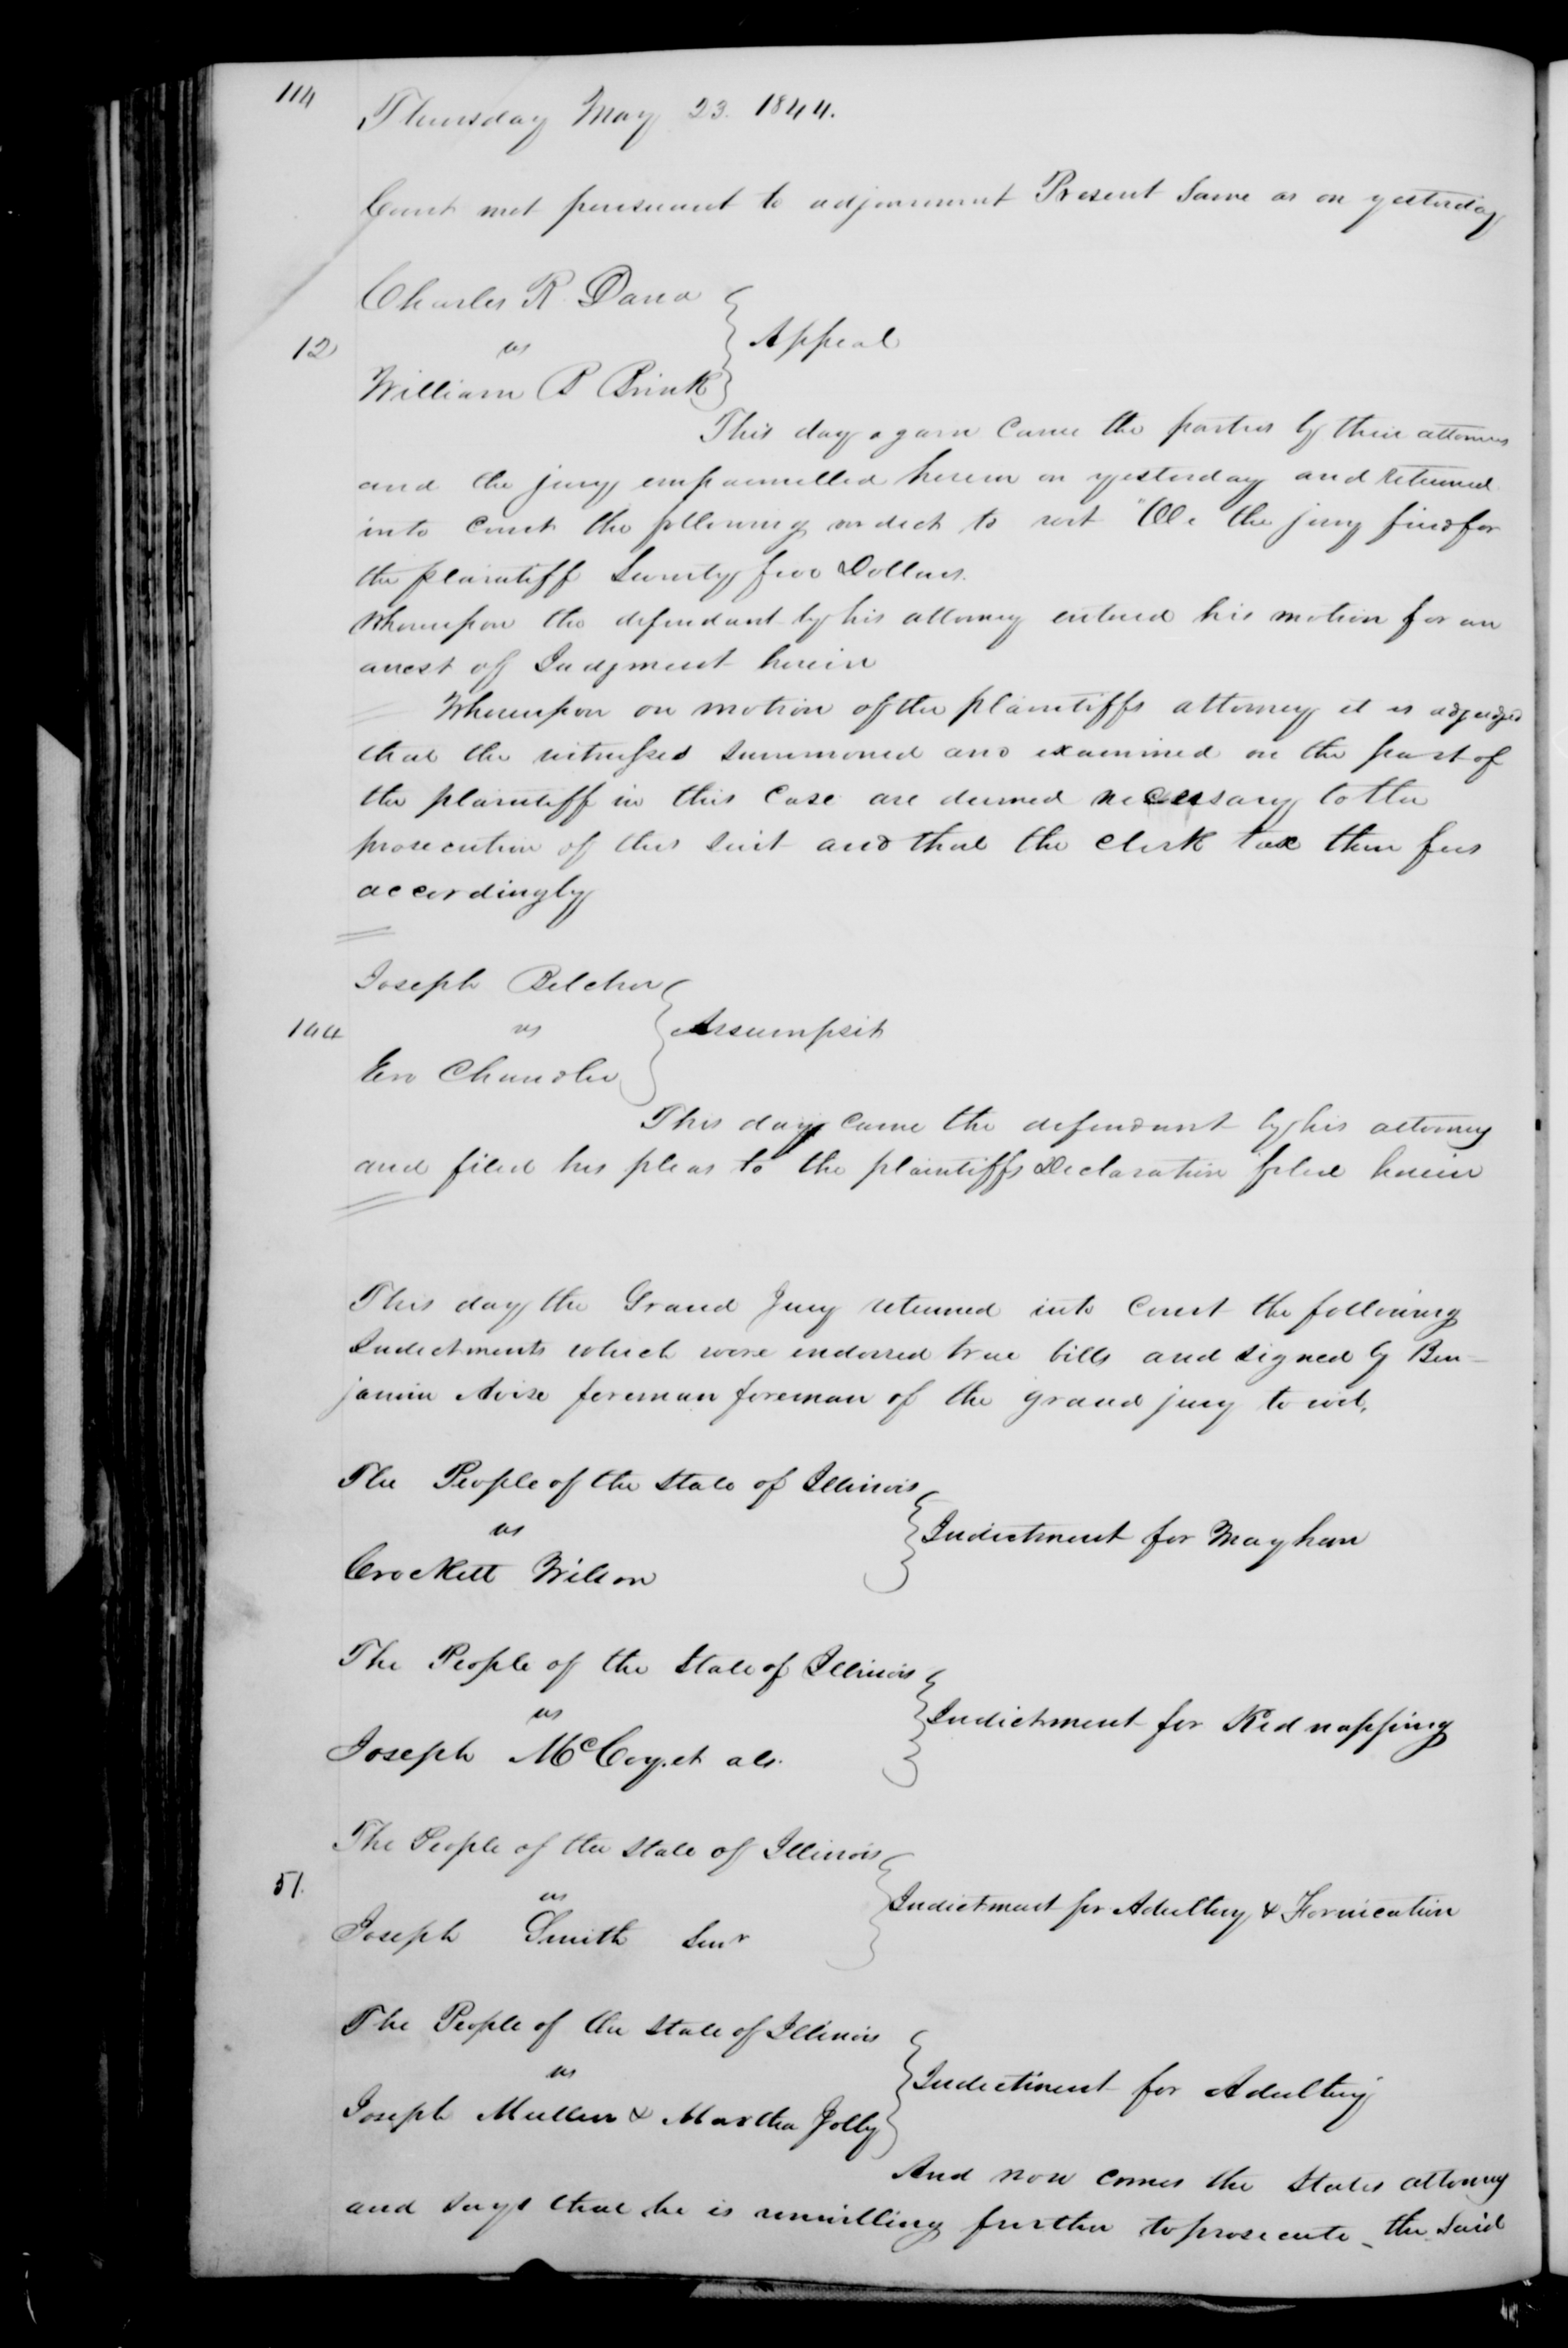 114
Thursday May 23. 1844.
Court met persuant to adjournment Present Same as on yesterday
Charles R. Dana
12 vs } Appeal
William B Brink
This day again came the parties by their attorneys
and the jury empannelled herein on yesterday and returned
into court the following verdict to wit "We the jury find for
the plaintiff Seventy five Dollars.
Whereupon the defendant by his attorney entered his motion for an
arrest of Judgment herein
Whereupon on motion of the plaintiffs attorney it is adjudged
that the witnesses summoned and examined on the part of
the plaintiff in this case are deemed necessary to the
prosecution of this suit and that the clerk tax their fees
accordingly
Joseph Belcher
144 vs } Assumpsit
Eri Chandler
This day came the defendant by his attorney
and filed his pleas to the plaintiffs Declaration filed herein
This day the Grand Jury returned into Court the following
Indictments which were endorsed true bills and signed by Ben-
jamin Avise foreman foreman of the grand jury to wit,
The People of the State of Illinois
vs } Indictment for Mayhem
Crockett Wilson
The People of the State of Illinois
vs } Indictment for Kidnapping
Joseph McCoy. et als.
The People of the State of Illinois
51. vs } Indictment for Adultery & Fornication
Joseph Smith Senr
The People of the State of Illinois
vs } Indictment for Adultery
Joseph Mullen & Martha Jolly
And now comes the States attorney
and says that he is unwilling further to prosecute the said